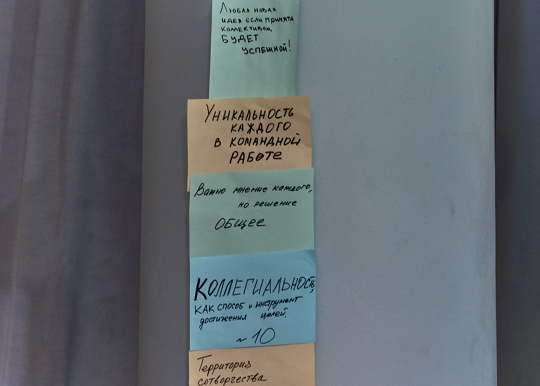 Любая новая
идея если принята
коллективом,
БУДЕТ
УСПЕШНОЙ!
УНИКАЛЬНОСТЬ
КАЖДОГО
В КОМАНДНОЙ
РАБОТЕ
Важно мнение каждого,
но решение
ОБЩЕЕ
КОЛЛЕГИАЛЬНОСТЬ
КАК СПОСОБ и инструмент
достижения целей.
~10
Территория
сотворчества